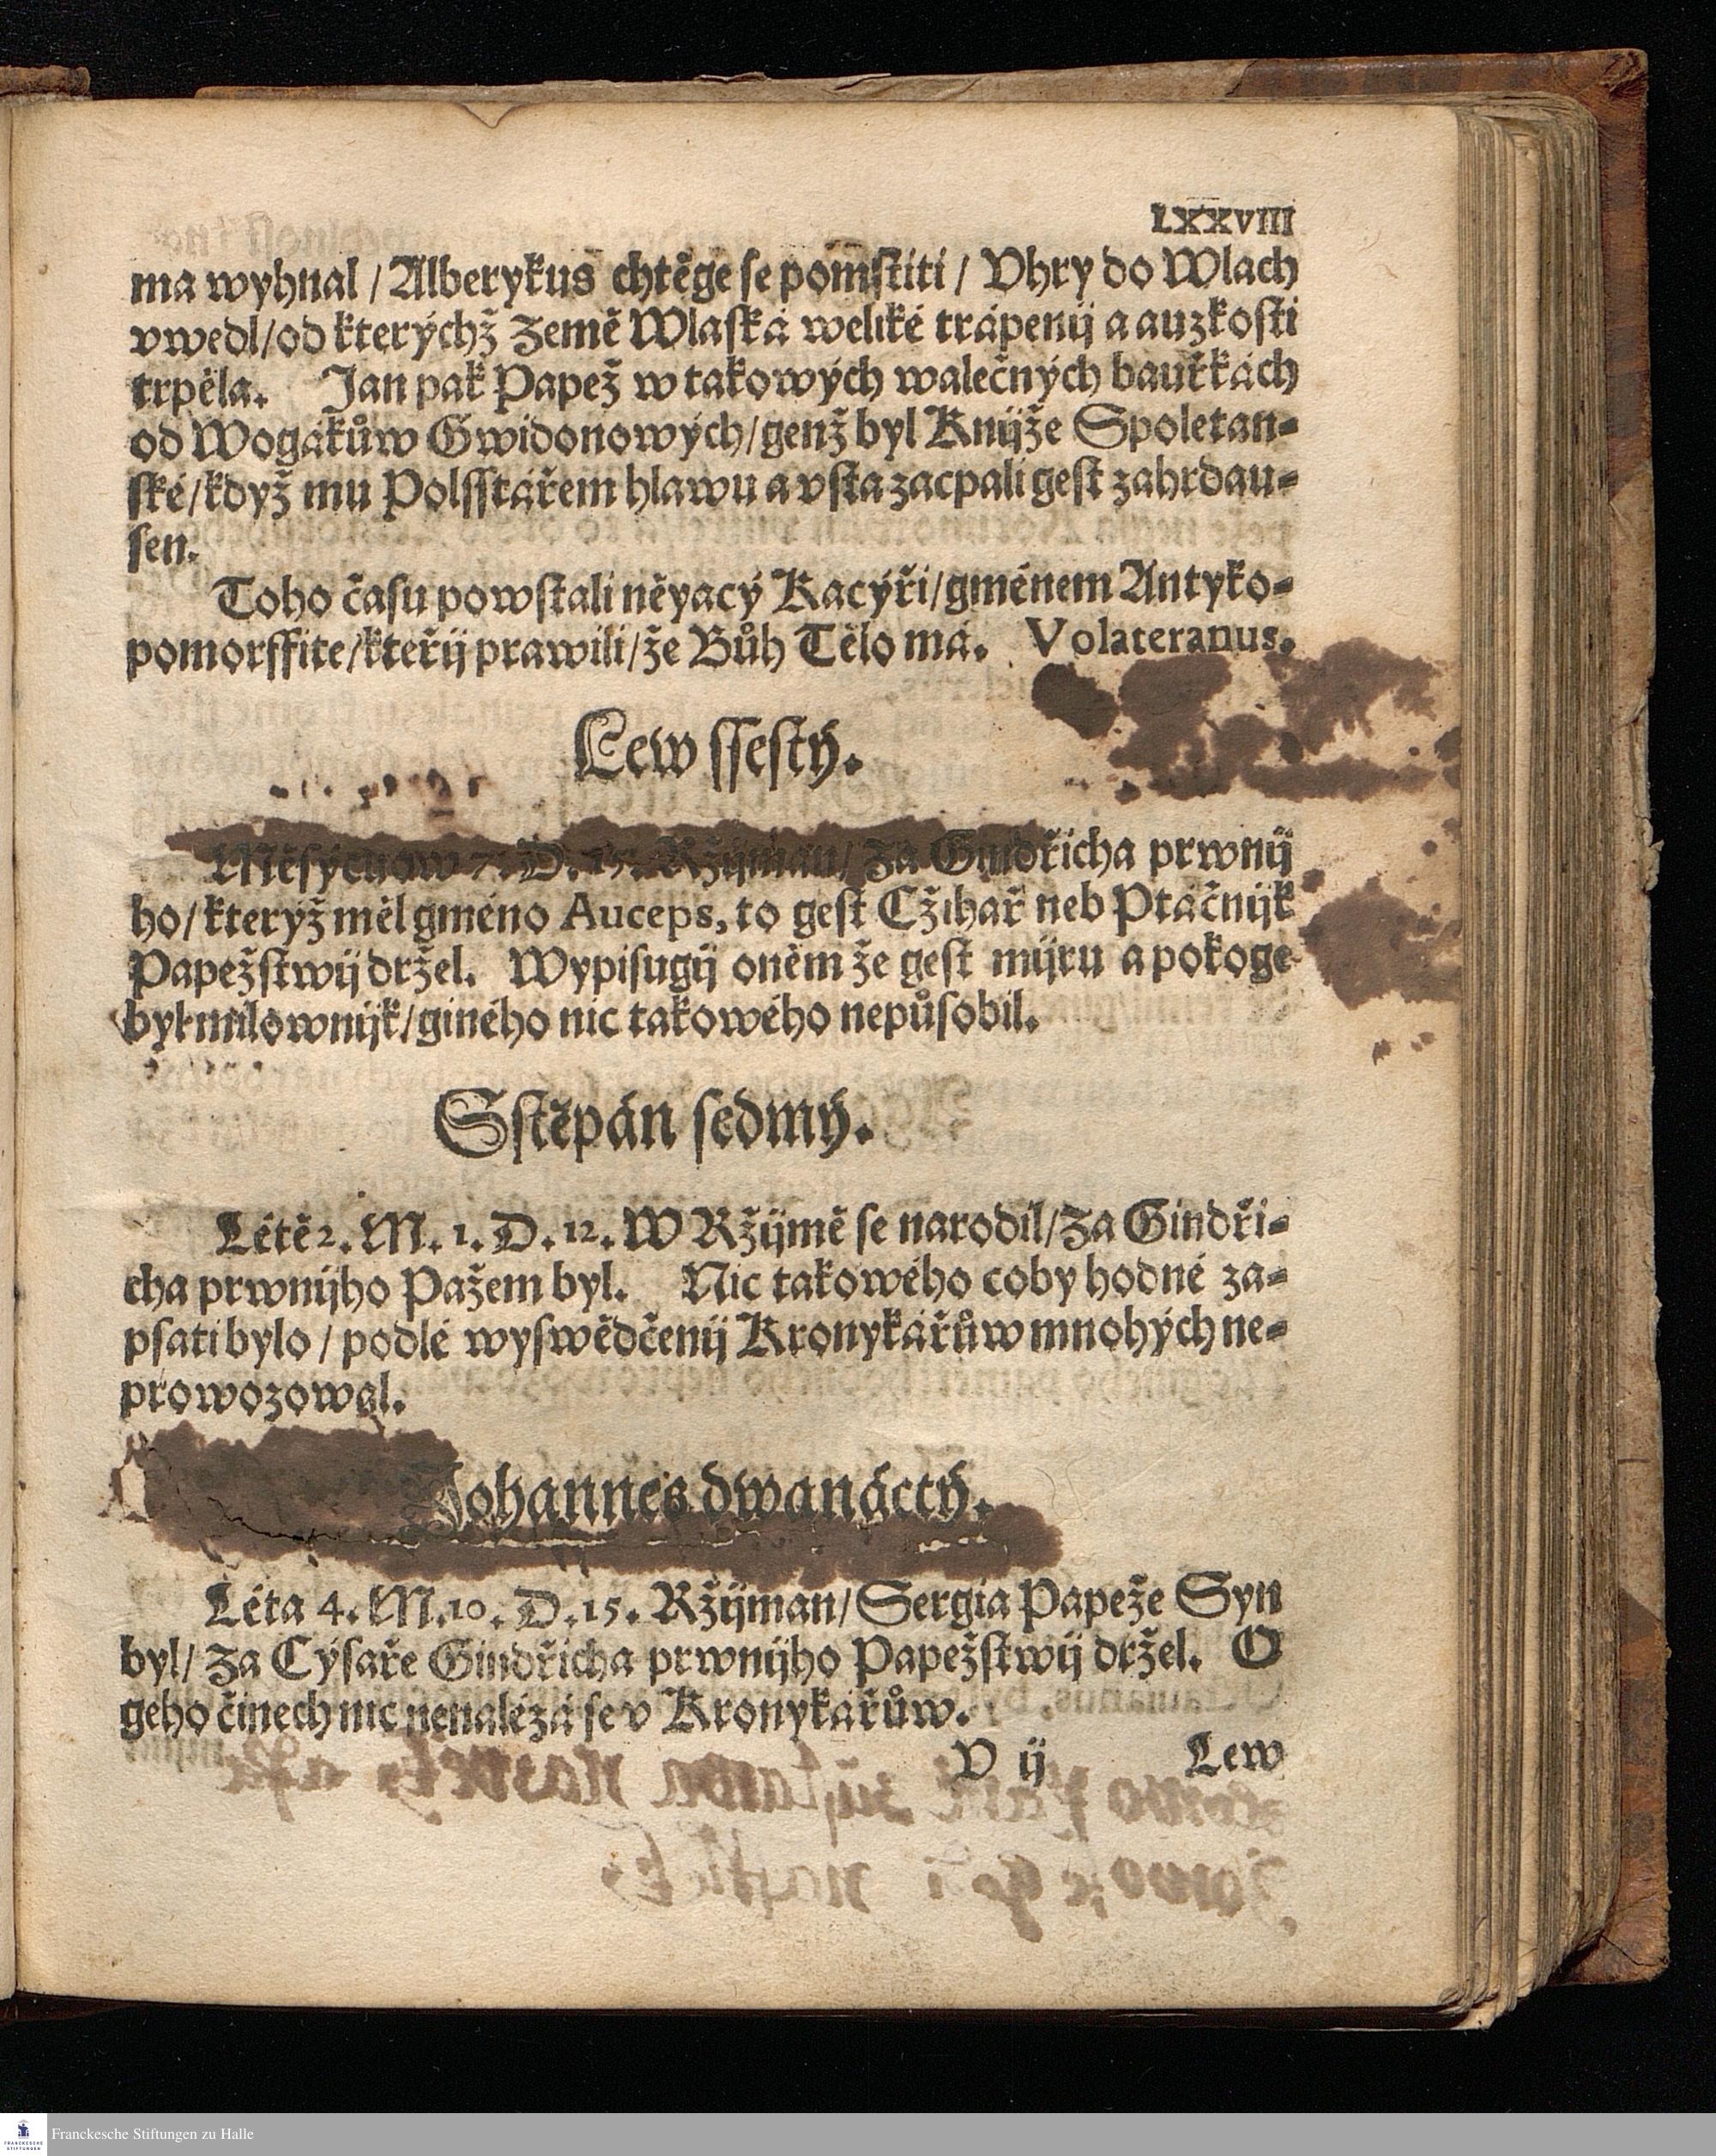 LXXVIII
ma wyhnal / Alberykus chtěge se pomstiti / Vhry do Wlach
vwedl / od kterýchž Země Wlaská weliké trápenij a auzkosti
trpěla. Jan pak Papež w takowých walečných bauřkách
od Wogákůw Gwidonowých / genž byl Knijže Spoletan-
ské / když mu Polsstářem hlawu a vsta zacpali gest zahrdau-
sen.
Toho času powstali něyacý Kacýři / gménem Antyko-
pomorffite / kteřij prawili / že Bůh Tělo má. Volateranus.
Lew ssestý.
Měsýcuow 7. D. 15. Ržijman / Za Gindřicha prwnij
ho / kterýž měl gméno Auceps, to gest Cžihař neb Ptáčnijk
Papežstwij držel. Wypisugij oněm že gest mijru a pokoge
byl milownijk / giného nic takowého nepůsobil.
Sstěpán sedmý.
Létě 2. M. 1. D. 12. W Ržijmě se narodil / Za Gindři-
cha prwnijho Pažem byl. Nic takowého coby hodné za-
psati bylo / podlé wyswědčenij Kronykářůw mnohých ne-
prowozowal.
Johannes dwanáctý.
Léta 4. M. 10. D. 15. Ržijman / Sergia Papeže Syn
byl / Za Cýsaře Gindřicha prwnijho Papežstwij držel. O
geho činech nic nenalézá se v Kronykářůw.
V ij Lew
Franckesche Stiftungen zu Halle